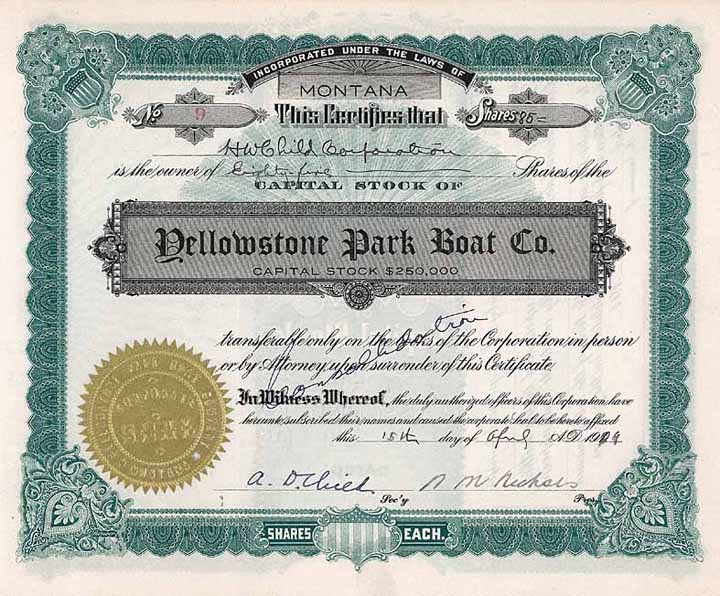 INCORPORATED UNDER THE LAWS OF
MONTANA
No 9
This Certifies that
Shares 85
H W Child Corporation
is the owner of Eighty five Shares of the
CAPITAL STOCK OF
Yellowstone Park Boat Co.
CAPITAL STOCK $250,000
transferable only on the Books of the Corporation in person
or by Attorney upon surrender of this Certificate
Consolidation
In Witness Whereof, the duly authorized officers of this Corporation have
hereunto subscribed their names and caused the corporate Seal to be hereto affixed
this 15th day of April A.D. 19
A. D. Child
Sec'y
Pres
SHARES EACH.